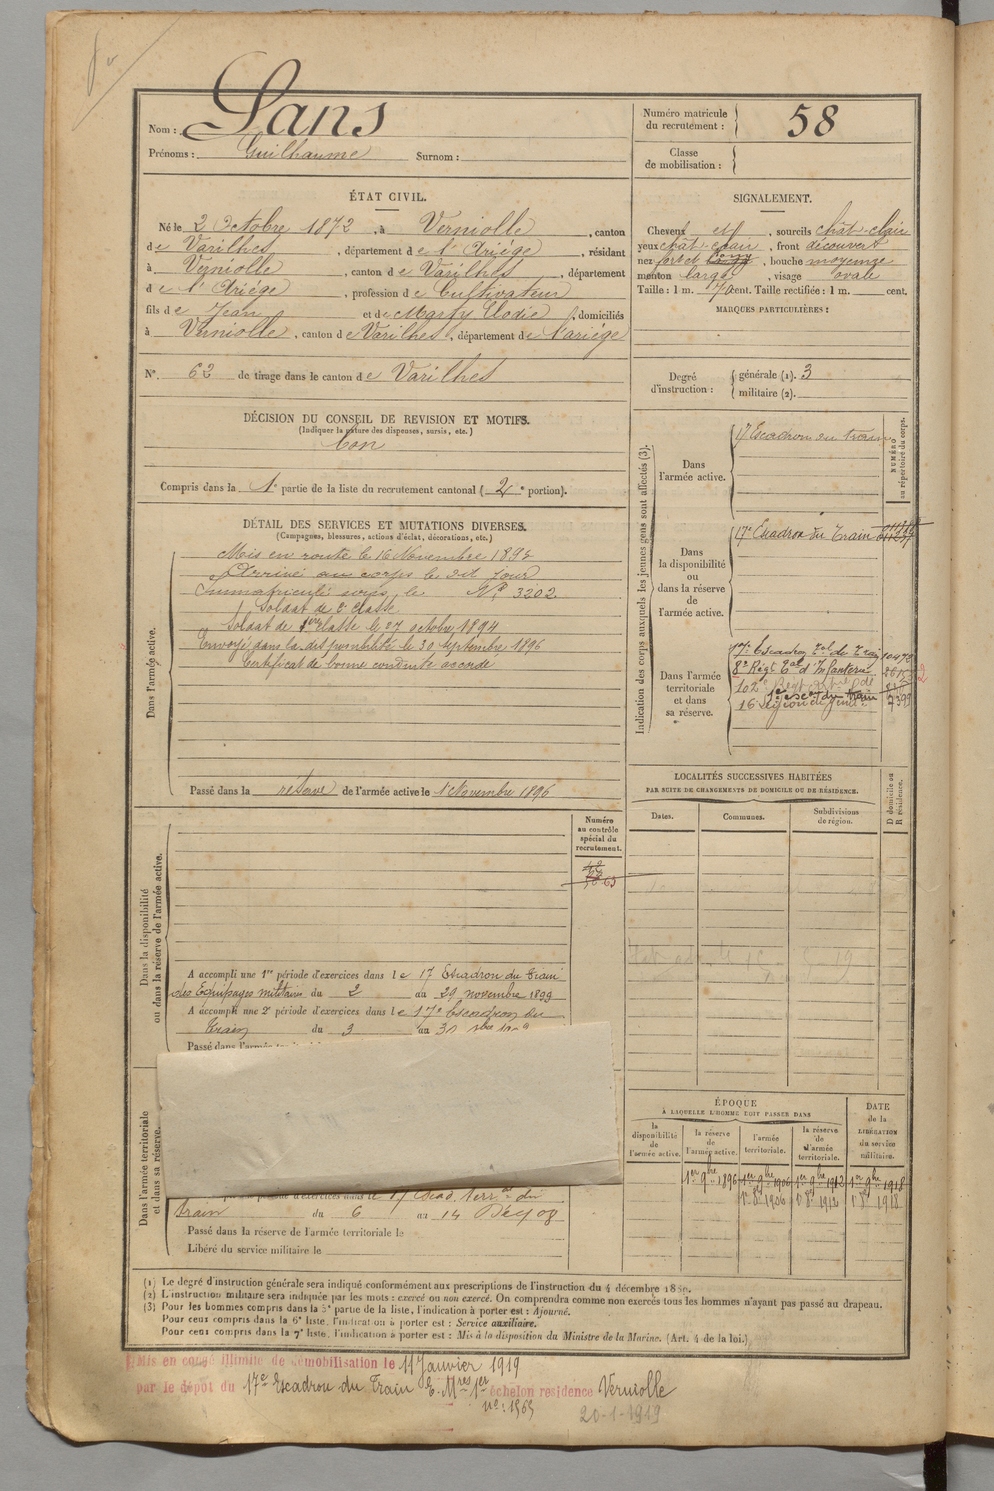 Nom : Sans
Prénoms : Guilhaume Surnom :
Numéro matricule du recrutement : 58
Classe de mobilisation :
ÉTAT CIVIL.
Né le 2 Octobre 1872, à Verniolle, canton
de Varilhes, département de l'Ariége, résidant
à Verniolle, canton de Varilhes, département
de l'Ariége, profession de Cultivateur
fils de Jean et de Marfy Elodie, domiciliés
à Verniolle, canton de Varilhes, département de l'ariége
N° 62 de tirage dans le canton de Varilhes
SIGNALEMENT.
Cheveux et, sourcils chât-clair
yeux chât-clair, front découvert
nez fort et long, bouche moyenne
menton large, visage ovale
Taille : 1 m. 70 cent. Taille rectifiée : 1 m. cent.
MARQUES PARTICULIÈRES :
Degré d'instruction :
générale (1). 3
militaire (2).
DÉCISION DU CONSEIL DE REVISION ET MOTIFS.
(Indiquer la nature des dispenses, sursis, etc.)
bon
Compris dans la 1e partie de la liste du recrutement cantonal (2e portion).
DÉTAIL DES SERVICES ET MUTATIONS DIVERSES.
(Campagnes, blessures, actions d'éclat, décorations, etc.)
Dans l'armée active.
Mis en route le 16 Novembre 1893
Arrivé au corps le dit jour
Immatriculé sous le N° 3202
Soldat de 2e classe
Soldat de 1ere classe le 27 octobre 1894
Envoyé dans la disponibilité le 30 septembre 1896
Certificat de bonne conduite accordé
Passé dans la réserve de l'armée active le 1 Novembre 1896
Indication des corps auxquels les jeunes gens sont affectés (3).
NUMÉRO au répertoire du corps.
Dans l'armée active.
17 Escadron du train
Dans la disponibilité ou dans la réserve de l'armée active.
17e Escadron du Train
Dans l'armée territoriale et dans sa réserve.
17e Escadron Tal du Train
8e Régt Tal d'Infanterie
LOCALITÉS SUCCESSIVES HABITÉES
PAR SUITE DE CHANGEMENTS DE DOMICILE OU DE RÉSIDENCE.
Dates. Communes. Subdivisions de région. D domicile ou R résidence.
Dans la disponibilité ou dans la réserve de l'armée active.
Numéro au contrôle spécial du recrutement.
A accompli une 1re période d'exercices dans le 17 Escadron du train
des Equipages militaires du 2 au 29 novembre 1899
A accompli une 2e période d'exercices dans le 17e Escadron du
Train du 3 au 30
Passé dans l'armée
Dans l'armée territoriale et dans sa réserve.
période d'exercices dans le 17 Escad. Terr.al du
train du 6 au 14 Déc. 08
Passé dans la réserve de l'armée territoriale le
Libéré du service militaire le
ÉPOQUE
À LAQUELLE L'HOMME DOIT PASSER DANS
la disponibilité de l'armée active.
la réserve de l'armée active.
l'armée territoriale.
la réserve de l'armée territoriale.
DATE de la LIBÉRATION du service militaire.
1er 9bre 1896 1er 9bre 1906 1er 9bre 1912 1er 9bre 1918
1r 8bre 1906 1r 8bre 1912 1r 8bre 1918
(1) Le degré d'instruction générale sera indiqué conformément aux prescriptions de l'instruction du 4 décembre 1889.
(2) L'instruction militaire sera indiquée par les mots : exercé ou non exercé. On comprendra comme non exercés tous les hommes n'ayant pas passé au drapeau.
(3) Pour les hommes compris dans la 5e partie de la liste, l'indication à porter est : Ajourné.
Pour ceux compris dans la 6e liste, l'indication à porter est : Service auxiliaire.
Pour ceux compris dans la 7e liste, l'indication à porter est : Mis à la disposition du Ministre de la Marine. (Art. 4 de la loi.)
Mis en congé illimité de démobilisation le 11 Janvier 1919
par le dépôt du 17e Escadron du Train E. Mres 1er échelon residence Verniolle
20-1-1919